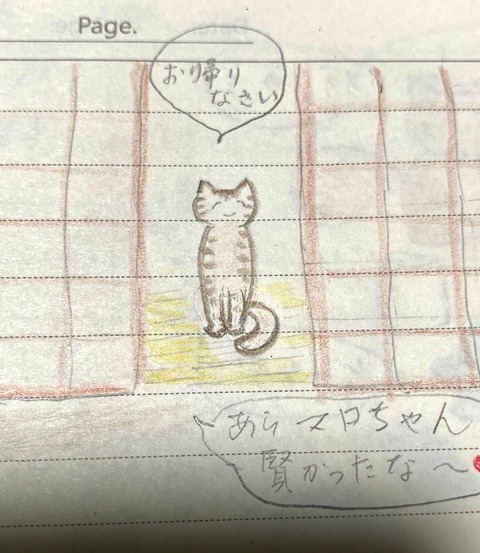 Page.
おり帰り
なさい
あら マロちゃん
賢かったな～